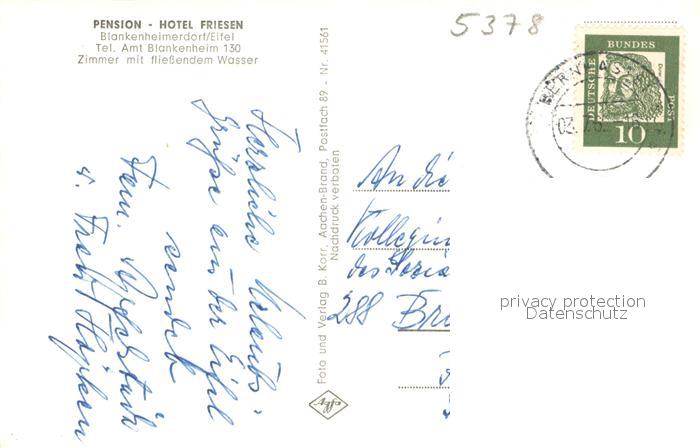 PENSION - HOTEL FRIESEN
Blankenheimerdorf/Eifel
Tel. Amt Blankenheim 130
Zimmer mit fließendem Wasser
5378
DEUTSCHE
BUNDES
POST
10
Foto und Verlag B. Korr, Aachen-Brand, Postfach 89 - Nr. 41561
Nachdruck verboten
Herzliche Urlaubs-
Grüße aus der Eifel
sendet
Fam.
u.
An die
Kollegin
des Sozia
288 Br
privacy protection
Datenschutz